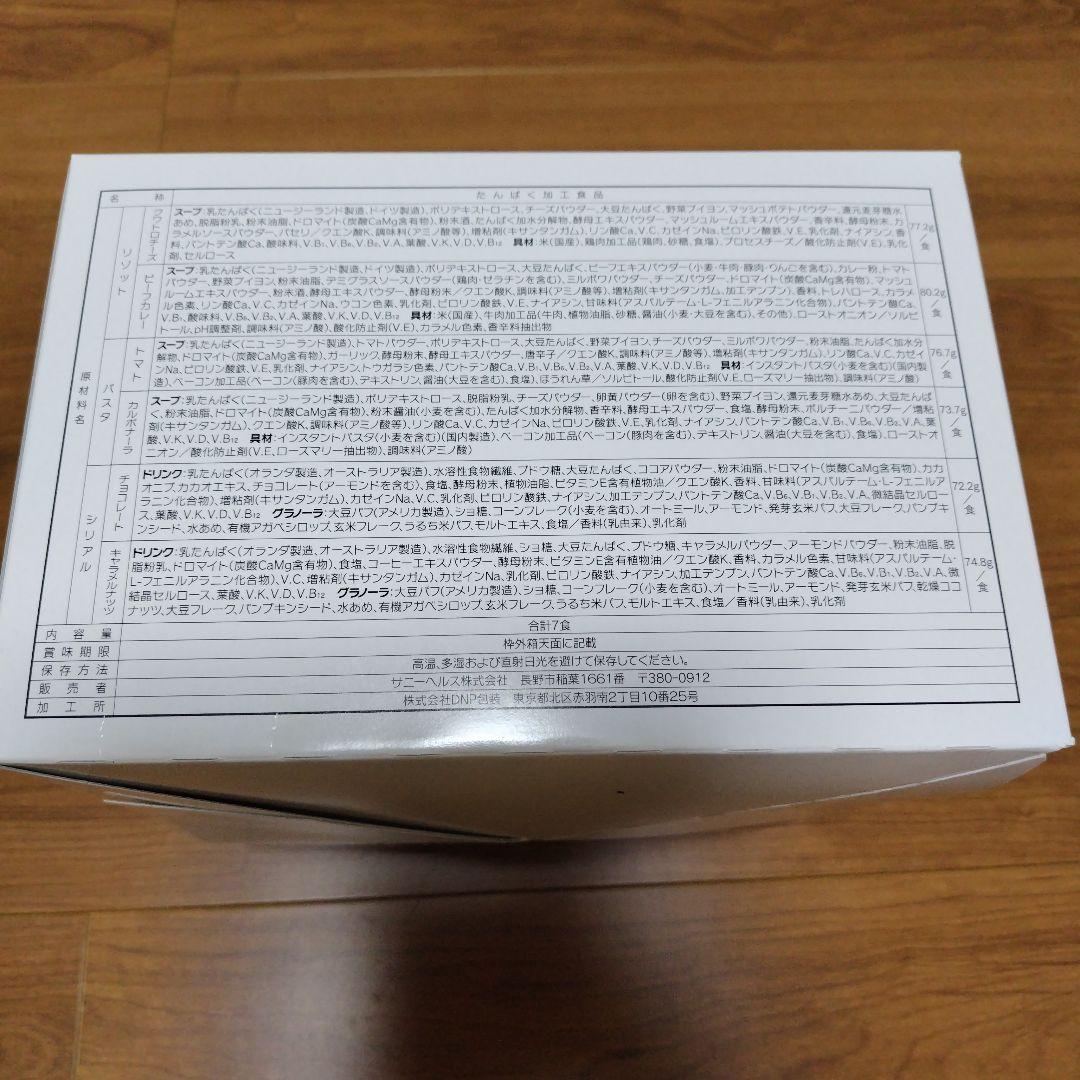 名称 たんぱく加工食品
原材料名
リゾット
クワトロチーズ
スープ:乳たんぱく(ニュージーランド製造、ドイツ製造)、ポリデキストロース、チーズパウダー、大豆たんぱく、野菜ブイヨン、マッシュポテトパウダー、還元麦芽糖水
あめ、脱脂粉乳、粉末油脂、ドロマイト(炭酸CaMg含有物)、粉末酒、たんぱく加水分解物、酵母エキスパウダー、マッシュルームエキスパウダー、香辛料、酵母粉末、カ
ラメルソースパウダー、パセリ/クエン酸K、調味料(アミノ酸等)、増粘剤(キサンタンガム)、リン酸Ca、V.C、カゼインNa、ピロリン酸鉄、V.E、乳化剤、ナイアシン、香
料、パントテン酸Ca、酸味料、V.B₁、V.B₆、V.B₂、V.A、葉酸、V.K、V.D、V.B₁₂ 具材:米(国産)、鶏肉加工品(鶏肉、砂糖、食塩)、プロセスチーズ/酸化防止剤(V.E)、乳化
剤、セルロース
77.2g/食
ビーフカレー
スープ:乳たんぱく(ニュージーランド製造、ドイツ製造)、ポリデキストロース、大豆たんぱく、ビーフエキスパウダー(小麦・牛肉・豚肉・りんごを含む)、カレー粉、トマト
パウダー、野菜ブイヨン、粉末油脂、デミグラスソースパウダー(鶏肉・ゼラチンを含む)、ミルポワパウダー、チーズパウダー、ドロマイト(炭酸CaMg含有物)、マッシュ
ルームエキスパウダー、粉末酒、酵母エキスパウダー、酵母粉末/クエン酸K、調味料(アミノ酸等)、増粘剤(キサンタンガム、加工デンプン)、香料、トレハロース、カラメ
ル色素、リン酸Ca、V.C、カゼインNa、ウコン色素、乳化剤、ピロリン酸鉄、V.E、ナイアシン、甘味料(アスパルテーム・L-フェニルアラニン化合物)、パントテン酸Ca、
V.B₁、酸味料、V.B₆、V.B₂、V.A、葉酸、V.K、V.D、V.B₁₂ 具材:米(国産)、牛肉加工品(牛肉、植物油脂、砂糖、醤油(小麦・大豆を含む)、その他)、ローストオニオン/ソルビ
トール、pH調整剤、調味料(アミノ酸)、酸化防止剤(V.E)、カラメル色素、香辛料抽出物
80.2g/食
パスタ
トマト
スープ:乳たんぱく(ニュージーランド製造)、トマトパウダー、ポリデキストロース、大豆たんぱく、野菜ブイヨン、チーズパウダー、ミルポワパウダー、粉末油脂、たんぱく加水分
解物、ドロマイト(炭酸CaMg含有物)、ガーリック、酵母粉末、酵母エキスパウダー、唐辛子/クエン酸K、調味料(アミノ酸等)、増粘剤(キサンタンガム)、リン酸Ca、V.C、カゼイ
ンNa、ピロリン酸鉄、V.E、乳化剤、ナイアシン、トウガラシ色素、パントテン酸Ca、V.B₁、V.B₆、V.B₂、V.A、葉酸、V.K、V.D、V.B₁₂ 具材:インスタントパスタ(小麦を含む)(国内製
造)、ベーコン加工品(ベーコン(豚肉を含む)、デキストリン、醤油(大豆を含む)、食塩)、ほうれん草/ソルビトール、酸化防止剤(V.E、ローズマリー抽出物)、調味料(アミノ酸)
76.7g/食
カルボナーラ
スープ:乳たんぱく(ニュージーランド製造)、ポリデキストロース、脱脂粉乳、チーズパウダー、卵黄パウダー(卵を含む)、野菜ブイヨン、還元麦芽糖水あめ、大豆たんぱ
く、粉末油脂、ドロマイト(炭酸CaMg含有物)、粉末醤油(小麦を含む)、たんぱく加水分解物、香辛料、酵母エキスパウダー、食塩、酵母粉末、ポルチーニパウダー/増粘
剤(キサンタンガム)、クエン酸K、調味料(アミノ酸等)、リン酸Ca、V.C、カゼインNa、ピロリン酸鉄、V.E、乳化剤、ナイアシン、パントテン酸Ca、V.B₁、V.B₆、V.B₂、V.A、葉
酸、V.K、V.D、V.B₁₂ 具材:インスタントパスタ(小麦を含む)(国内製造)、ベーコン加工品(ベーコン(豚肉を含む)、デキストリン、醤油(大豆を含む)、食塩)、ローストオ
ニオン/酸化防止剤(V.E、ローズマリー抽出物)、調味料(アミノ酸)
73.7g/食
シリアル
チョコレート
ドリンク:乳たんぱく(オランダ製造、オーストラリア製造)、水溶性食物繊維、ブドウ糖、大豆たんぱく、ココアパウダー、粉末油脂、ドロマイト(炭酸CaMg含有物)、カカ
オニブ、カカオエキス、チョコレート(アーモンドを含む)、食塩、酵母粉末、植物油脂、ビタミンE含有植物油/クエン酸K、香料、甘味料(アスパルテーム・L-フェニルア
ラニン化合物)、増粘剤(キサンタンガム)、カゼインNa、V.C、乳化剤、ピロリン酸鉄、ナイアシン、加工デンプン、パントテン酸Ca、V.B₆、V.B₁、V.B₂、V.A、微結晶セルロー
ス、葉酸、V.K、V.D、V.B₁₂ グラノーラ:大豆パフ(アメリカ製造)、ショ糖、コーンフレーク(小麦を含む)、オートミール、アーモンド、発芽玄米パフ、大豆フレーク、パンプキ
ンシード、水あめ、有機アガベシロップ、玄米フレーク、うるち米パフ、モルトエキス、食塩/香料(乳由来)、乳化剤
72.2g/食
キャラメルナッツ
ドリンク:乳たんぱく(オランダ製造、オーストラリア製造)、水溶性食物繊維、ショ糖、大豆たんぱく、ブドウ糖、キャラメルパウダー、アーモンドパウダー、粉末油脂、脱
脂粉乳、ドロマイト(炭酸CaMg含有物)、食塩、コーヒーエキスパウダー、酵母粉末、ビタミンE含有植物油/クエン酸K、香料、カラメル色素、甘味料(アスパルテーム・
L-フェニルアラニン化合物)、V.C、増粘剤(キサンタンガム)、カゼインNa、乳化剤、ピロリン酸鉄、ナイアシン、加工デンプン、パントテン酸Ca、V.B₆、V.B₁、V.B₂、V.A、微
結晶セルロース、葉酸、V.K、V.D、V.B₁₂ グラノーラ:大豆パフ(アメリカ製造)、ショ糖、コーンフレーク(小麦を含む)、オートミール、アーモンド、発芽玄米パフ、乾燥ココ
ナッツ、大豆フレーク、パンプキンシード、水あめ、有機アガベシロップ、玄米フレーク、うるち米パフ、モルトエキス、食塩/香料(乳由来)、乳化剤
74.8g/食
内容量 合計7食
賞味期限 枠外箱天面に記載
保存方法 高温、多湿および直射日光を避けて保存してください。
販売者 サニーヘルス株式会社 長野市稲葉1661番 〒380-0912
加工所 株式会社DNP包装 東京都北区赤羽南2丁目10番25号